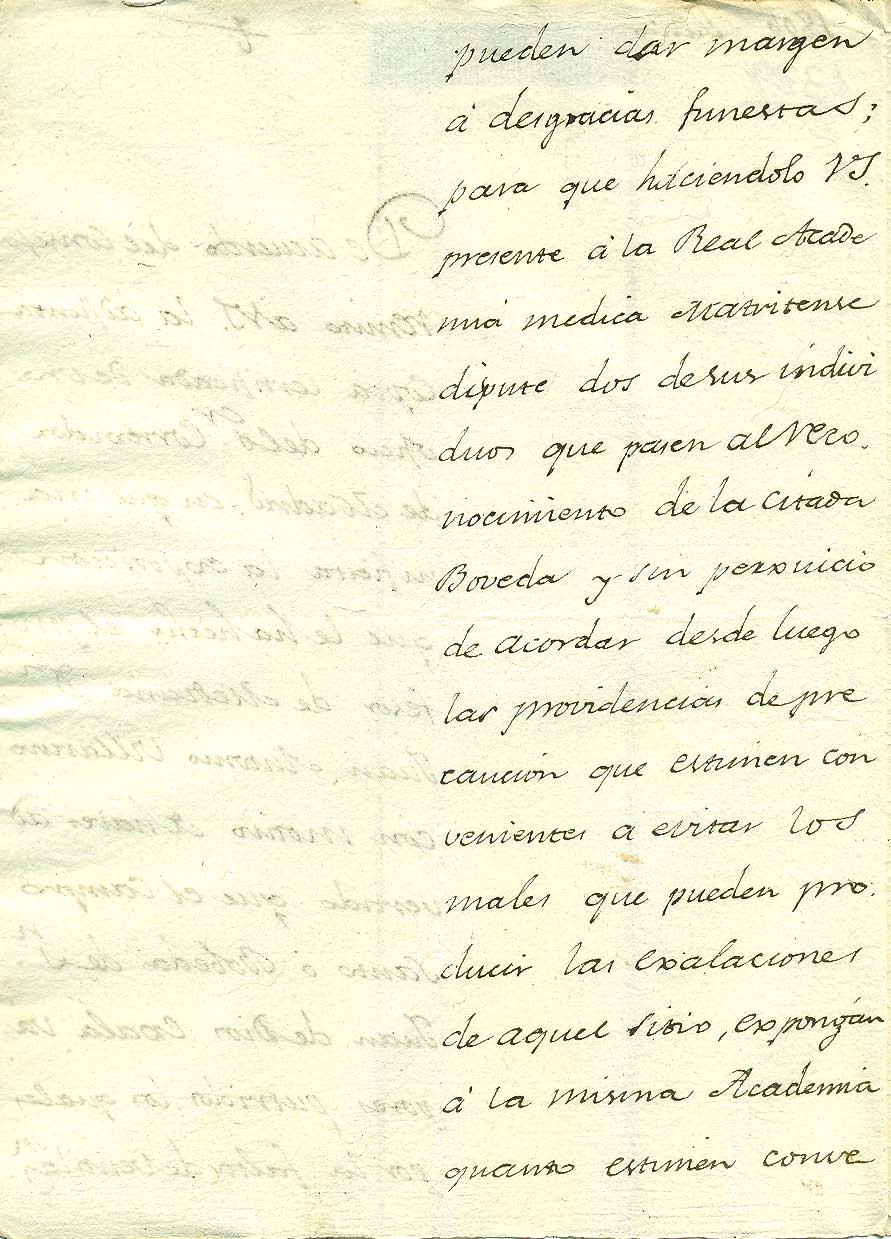 pueden dar margen
á desgracias funestas;
para que haciendolo VS.
presente á la Real Acade
mia medica Matritense
dipute dos de sus indivi
duos que pasen al reco.
nocimiento de la citada
Boveda y sin perxuicio
de acordar desde luego
las providencias de pre
caución que estimen con
venientes a evitar los
males que pueden pro.
ducir las exalaciones
de aquel sitio, expongán
á la misma Academia
quanto estimen conve